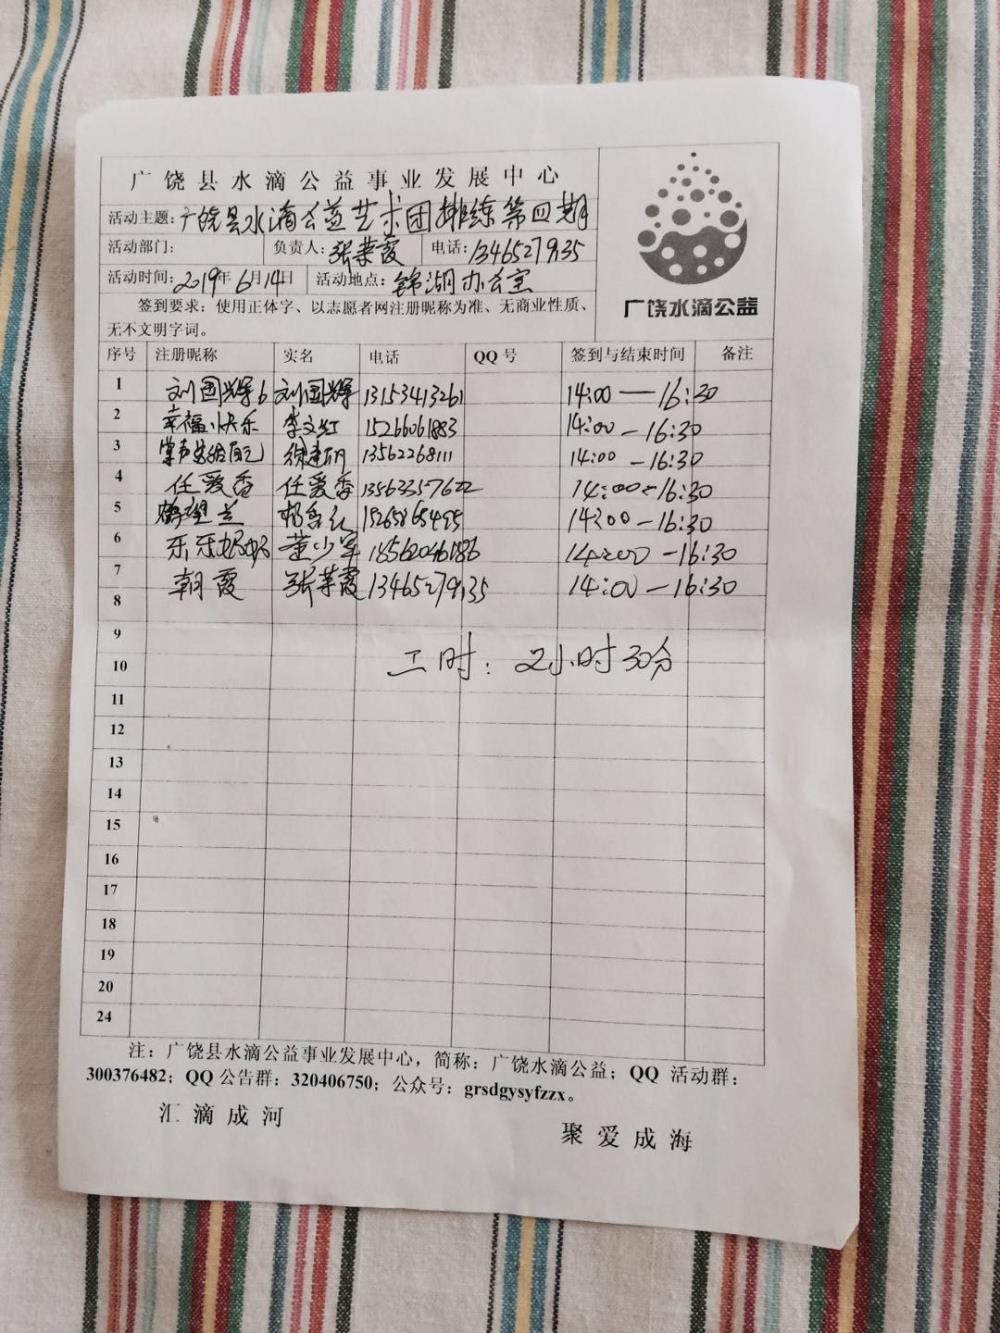 广饶县水滴公益事业发展中心
活动主题:广饶县水滴公益艺术团排练第四期
活动部门: 负责人:张荣霞 电话:13465279135
活动时间:2019年6月14日 活动地点:锦湖办公室
签到要求:使用正体字、以志愿者网注册昵称为准、无商业性质、
无不文明字词。
广饶水滴公益
序号 注册昵称 实名 电话 QQ号 签到与结束时间 备注
1 刘国辉6 刘国辉 13153413261 14:00—16:30
2 幸福快乐 李文红 15266061883 14:00—16:30
3 掌声送给自己 徐建明 13562268111 14:00—16:30
4 任爱香 任爱香 13563357622 14:00—16:30
5 鹤望兰 杨香红 15265865495 14:00—16:30
6 乐乐奶奶 董少军 18562046186 14:00—16:30
7 朝霞 张荣霞 13465279135 14:00—16:30
8
9
工时:2小时30分
10
11
12
13
14
15
16
17
18
19
20
24
注:广饶县水滴公益事业发展中心,简称:广饶水滴公益;QQ 活动群:
300376482;QQ公告群:320406750;公众号:grsdgysyfzzx。
汇滴成河 聚爱成海